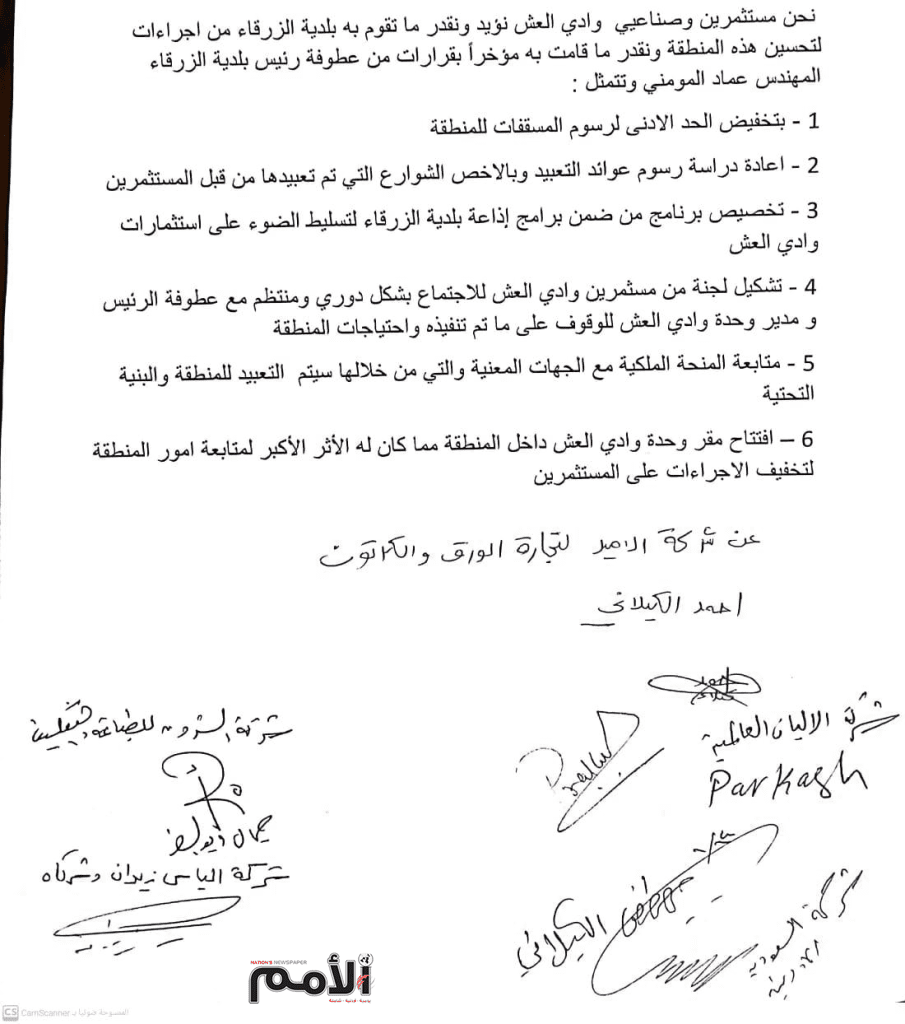 نحن مستثمرين وصناعيي وادي العش نؤيد ونقدر ما تقوم به بلدية الزرقاء من اجراءات
لتحسين هذه المنطقة ونقدر ما قامت به مؤخراً بقرارات من عطوفة رئيس بلدية الزرقاء
المهندس عماد المومني وتتمثل :
1 - بتخفيض الحد الادنى لرسوم المسقفات للمنطقة
2 - اعادة دراسة رسوم عوائد التعبيد وبالاخص الشوارع التي تم تعبيدها من قبل المستثمرين
3 - تخصيص برنامج من ضمن برامج إذاعة بلدية الزرقاء لتسليط الضوء على استثمارات
وادي العش
4 - تشكيل لجنة من مسثمرين وادي العش للاجتماع بشكل دوري ومنتظم مع عطوفة الرئيس
و مدير وحدة وادي العش للوقوف على ما تم تنفيذه واحتياجات المنطقة
5 - متابعة المنحة الملكية مع الجهات المعنية والتي من خلالها سيتم التعبيد للمنطقة والبنية
التحتية
6 – افتتاح مقر وحدة وادي العش داخل المنطقة مما كان له الأثر الأكبر لمتابعة امور المنطقة
لتخفيف الاجراءات على المستثمرين
عن شركة الامير لتجارة الورق والكرتون
احمد الكيلاني
شركة الاليان العالمية
Parkash
شركة للطباعة والتغليف
جمال
شركة الياس زيدان وشركاه
الكيلاني
شركة السعودية
الاردنية
NATION'S NEWSPAPER
الأمم
CS CamScanner الممسوحة ضوئيا بـ